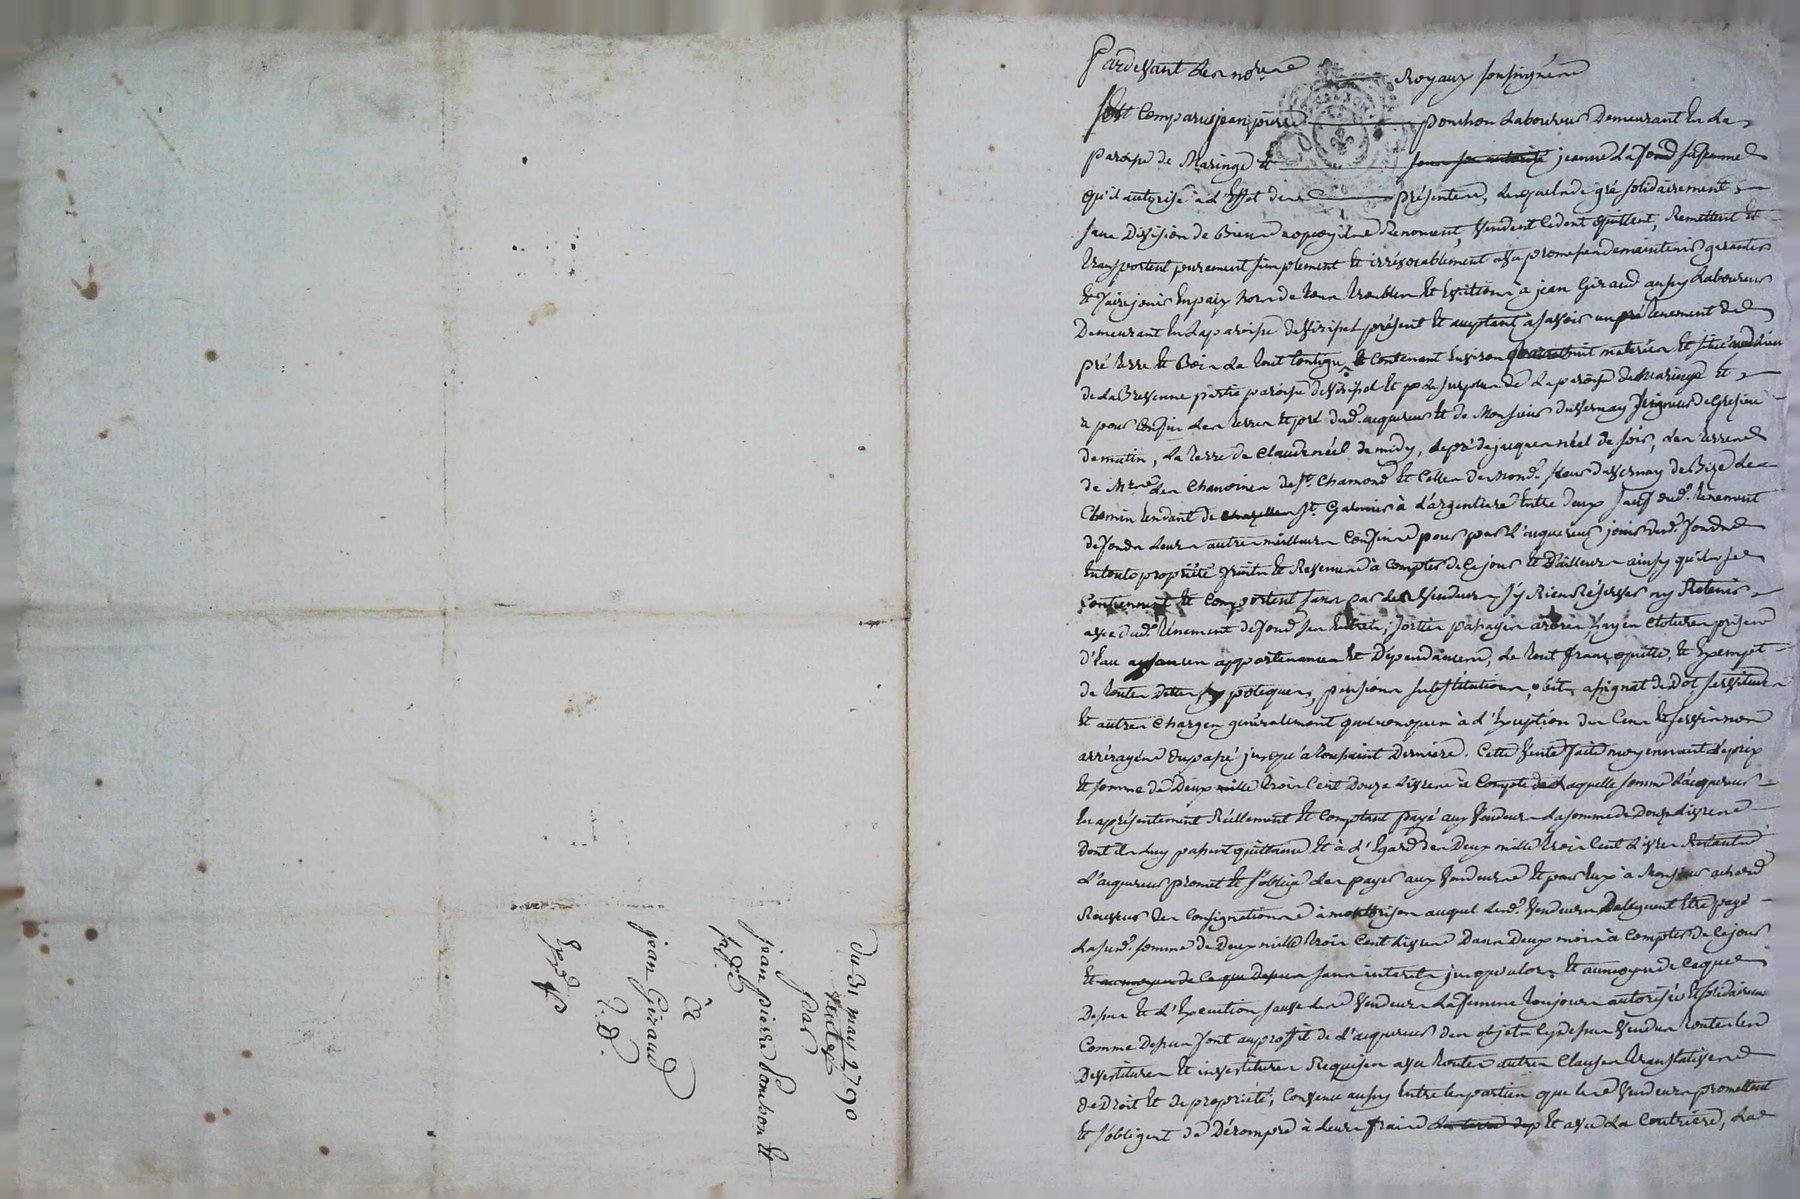 du 31 mars 1790
Vente
par
jean pierre Ponchon et
sa f.e
à
jean Giraud
Pardevant Les no.res Royaux soussignés
sont Comparus jean pierre ponchon Laboureur Demeurant En La
paroisse de Maringe et sous son autorité jeanne Lafond sa femme
qu'il autorise à L'Effet des présentes, Lesquels de gré solidairement
sans Division de Biens à quoy ils Renoncent, Vendent Cedent quittent, Remettent et
transportent purement simplement et irrévocablement avec promesse de maintenir garantir
et faire jouir En paix hors de tous troubles et Evictions à jean Giraud aussy Laboureur
Demeurant En La paroisse de Viricel présent et acceptant à savoir un pré tenement de
pré terre et Bois Le tout Contigu Contenant Environ huit materées et situé au Lieu
de La Brevenne partie paroisse de Viricel et p.r Le surplus de La paroisse de Maringe et
a pour Confin Les terres et pré dud. acquereur et de Monsieur duVernay seigneur de Grezieu
de matin, La terre de Claude néel de midy, Le pré de jacques néel de soir, Les terres
de M.rs Les Chanoines de S.t Chamond et Celles de mond. sieur duVernay de Bize Le
Chemin tendant de Chazelles S.t Galmier à L'argentiere Entre deux sauf dud. tenement
de fonds Leurs autres meilleurs Confins pour par L'acquereur jouir dud. fonds
En toute propriété fruits et Revenus à Compter de Ce jour et D'ailleurs ainsy qu'ils se
Contiennent et Comportent sans par Les Vendeurs s'y Rien Réserver ny Retenir
avec dud. tenement de fond ses Entrées, sorties passages arbres hayes Clotures prises
d'Eau aisances appartenances et Dépendances, Le tout franc quitte, et Exempt
de toutes Dettes hypoteques, pensions substitutions, obits, assignat de Dot servitudes
et autres Charges généralement quelconques à L'Exception du Cens et servis non
arréragés du passé jusqu'à toussaint Derniere. Cette Vente faite moyennant Le prix
et somme de Deux mille trois Cent Douze Livres à Compte de Laquelle somme L'acquereur
En a présentement Réellement et Comptant payé aux Vendeurs La somme de Douze Livres
Dont ils Luy passent quittance et à L'Egard des Deux mille trois Cent Livres Restantes
L'acquereur promet et s'oblige Les payer aux Vendeurs et pour Eux à Monsieur
Receveur des Consignations à montbrison auquel Lesd. Vendeurs Deleguent Etre payé
La susd. somme de Deux mille trois Cent Livres Dans Deux mois à Compter de Ce jour
et au moyen de Ce que Dessus sans interets jusqu'alors et au moyen de Ce que
Dessus et L'Execution sauve Les Vendeurs La femme toujours autorisée et solidaires
Comme Dessus font au proffit de L'acquereur des objets Cy dessus Vendus toutes Les
Devestitures et investitures Requises avec toutes autres Clauses translatives
de Droit et de propriété; Convenu aussy Entre Les parties que Les Vendeurs promettent
et s'obligent de Dérompre à Leurs frais et avec La Coutriere, La